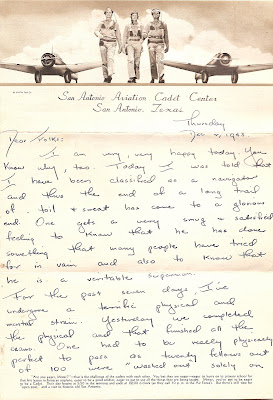 San Antonio Aviation Cadet Center
San Antonio, Texas
Thursday
Dec 2, 1943.
Dear Folks:
I am very, very happy today. You
know why, too. Today I was told that
I have been classified as a navigator
and thus the end of a long trail
of toil & sweat has come to a glorious
end. One gets a very smug & satisfied
feeling to know that he has done
something that many people have tried
for in vain and also to know that
he is a veritable superman.
For the past seven days I've
undergone a terrific physical and
mental strain. Yesterday we completed
the physical and that finished all the
exams. One had to be really physically
perfect to pass as twenty fellows out
of 100 were "washed out" solely on